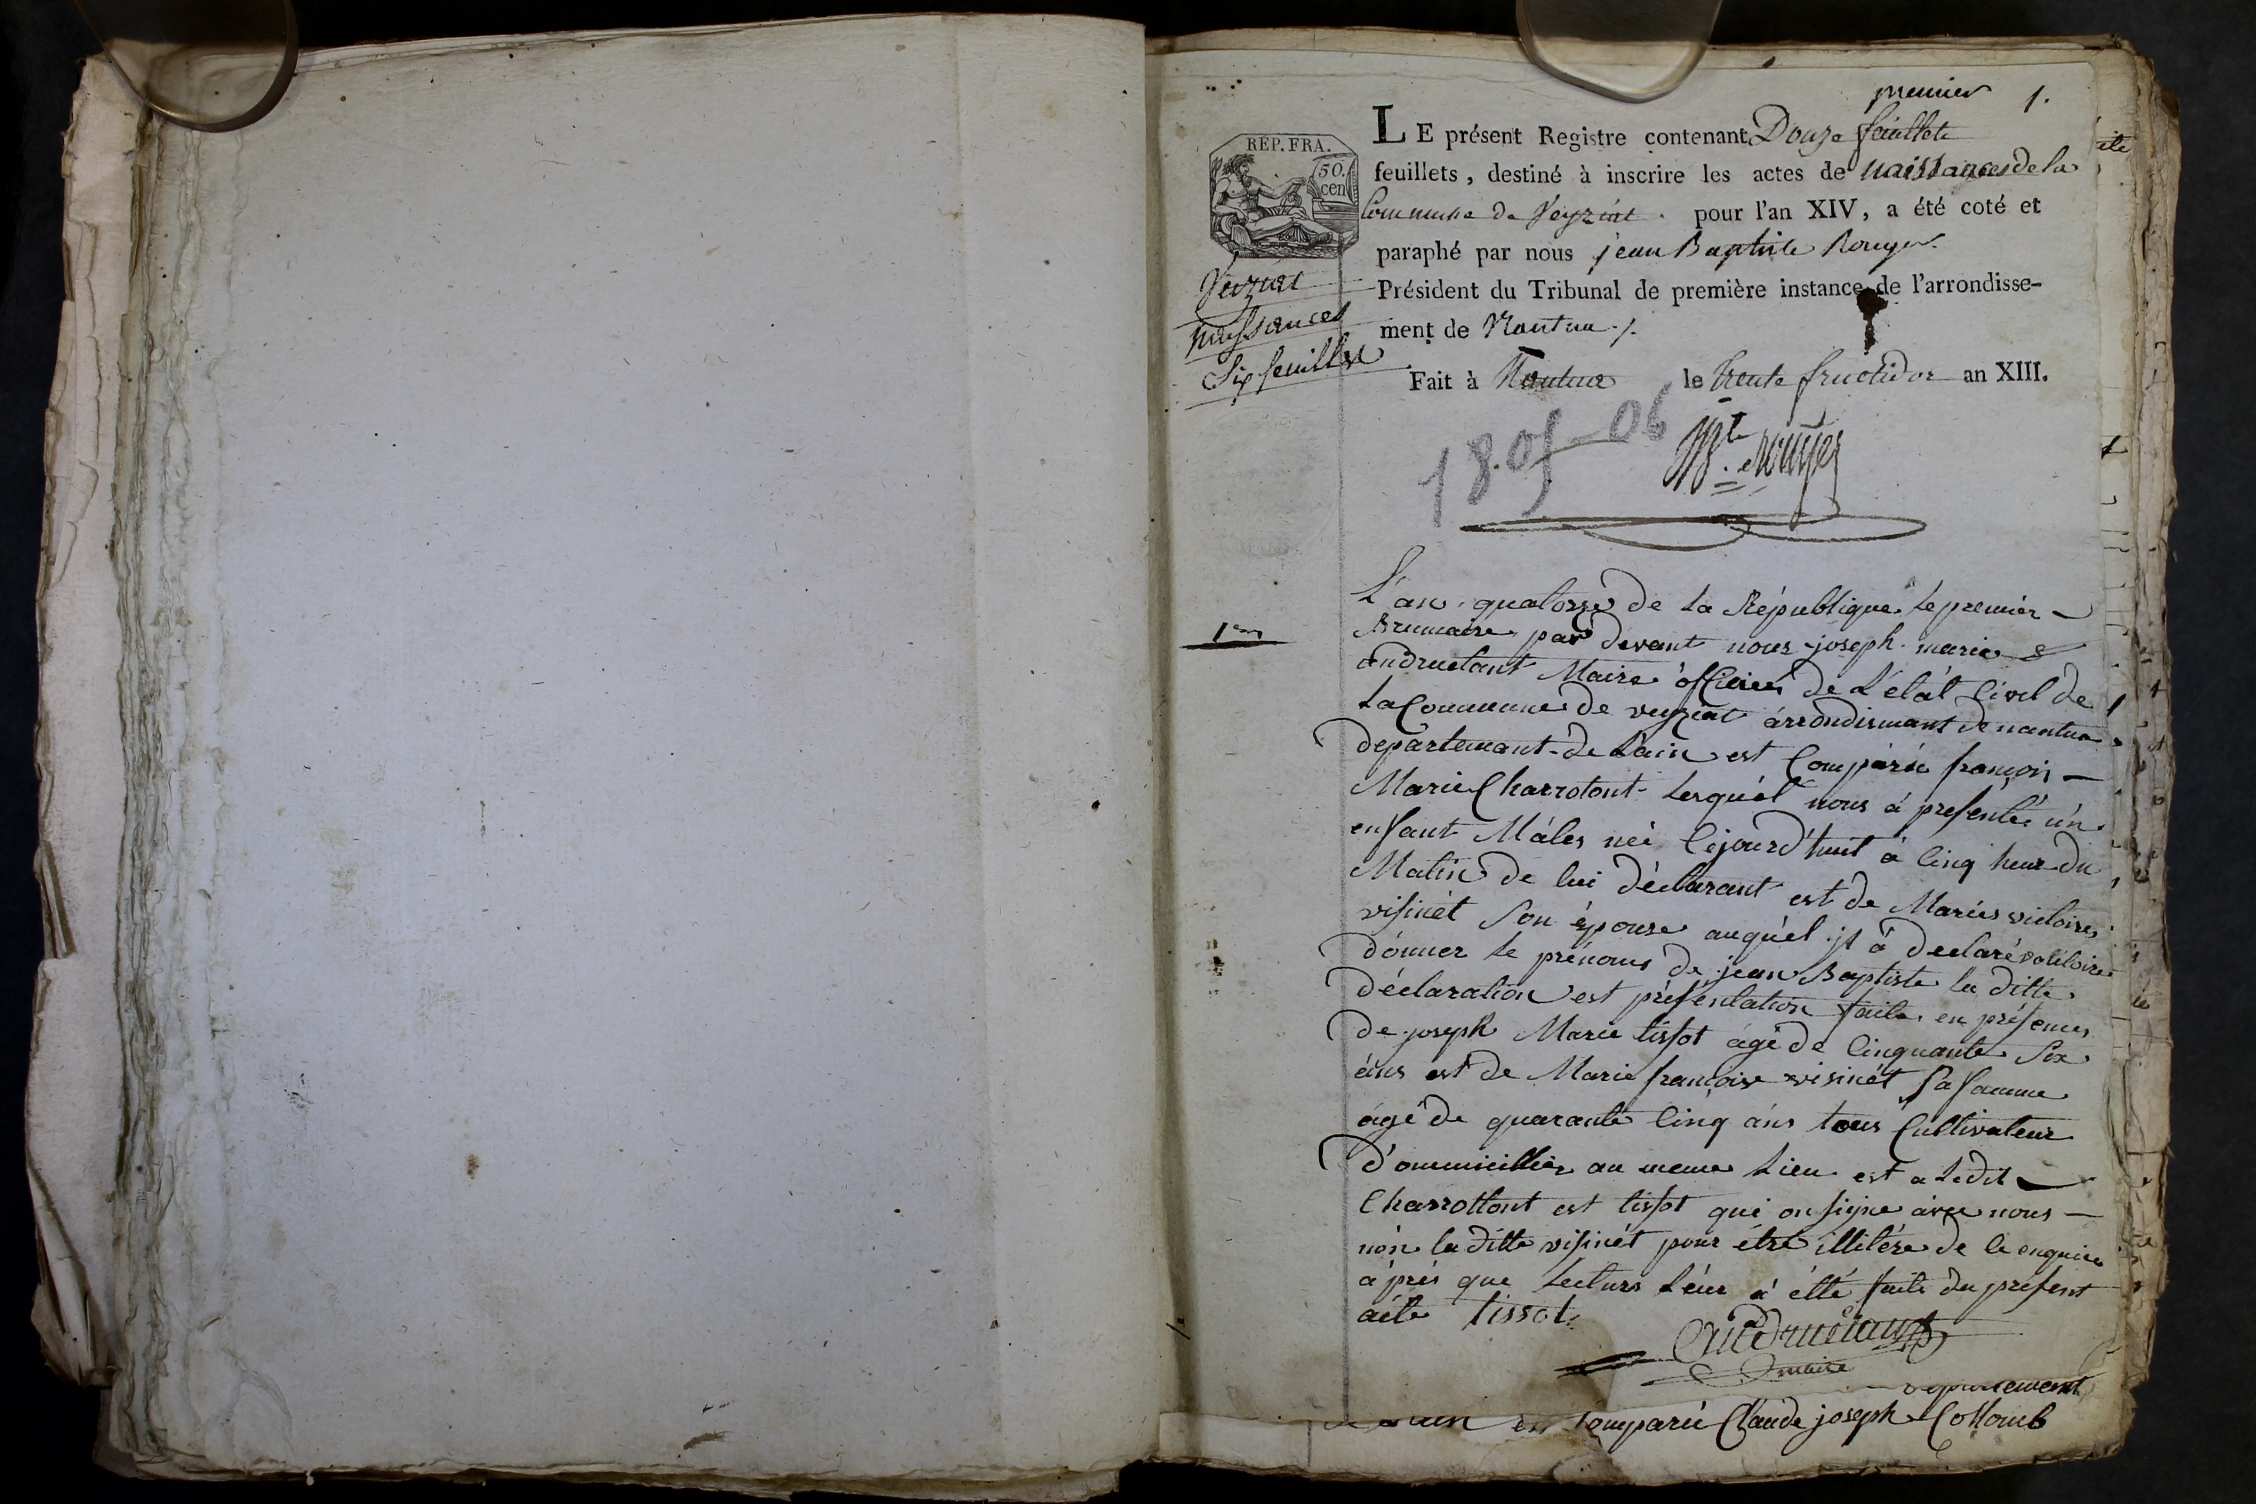 premier 1.
LE présent Registre contenant Douze feuillets
feuillets, destiné à inscrire les actes de naissances de la
Commune de Veyziat. pour l'an XIV, a été coté et
paraphé par nous jean Baptiste Rouyer.
Président du Tribunal de première instance de l'arrondisse-
ment de Nantua ./.
Fait à Nantua le trente fructidor an XIII.
REP. FRA.
50.
cen
Veiziat
naissances
Six feuillet
1805-06
Bte Rouyer
1er
L'an quatorze de la République le premier
Brumaire par devant nous joseph marie
andruetant Maire officier de L'état Civil de
La Commune de veyziat arrondismant de nantua
departemant de Lain est Comparu françois
Marie Charrotont Lesquél nous á presenté ún
enfant Máles néé Cejourd'huit á Cinq heur du
Matin de lui déclarant est de Maries victoires
visinét Son épouse auquél il á declaré voiloire
dónner le prénoms de jean Baptiste la ditte
déclaration est présentation faite en présences
de joseph Marie tissot ágé de Cinquante Six
áns est de Marie françoise visinét Sa famme
ágé de quarante Cinq áns tous Cultivateur
d'ommicillier au meme Lieu est a Ledit
Charrottont est tissot qui on signe avec nous
nón la ditte visinét pour étre illitére de ce enquire
á prés que Lecturs Léur á étté faite du présent
acte tissot
andruétant
maire
departement
de Lain est comparu Claude joseph Collomb